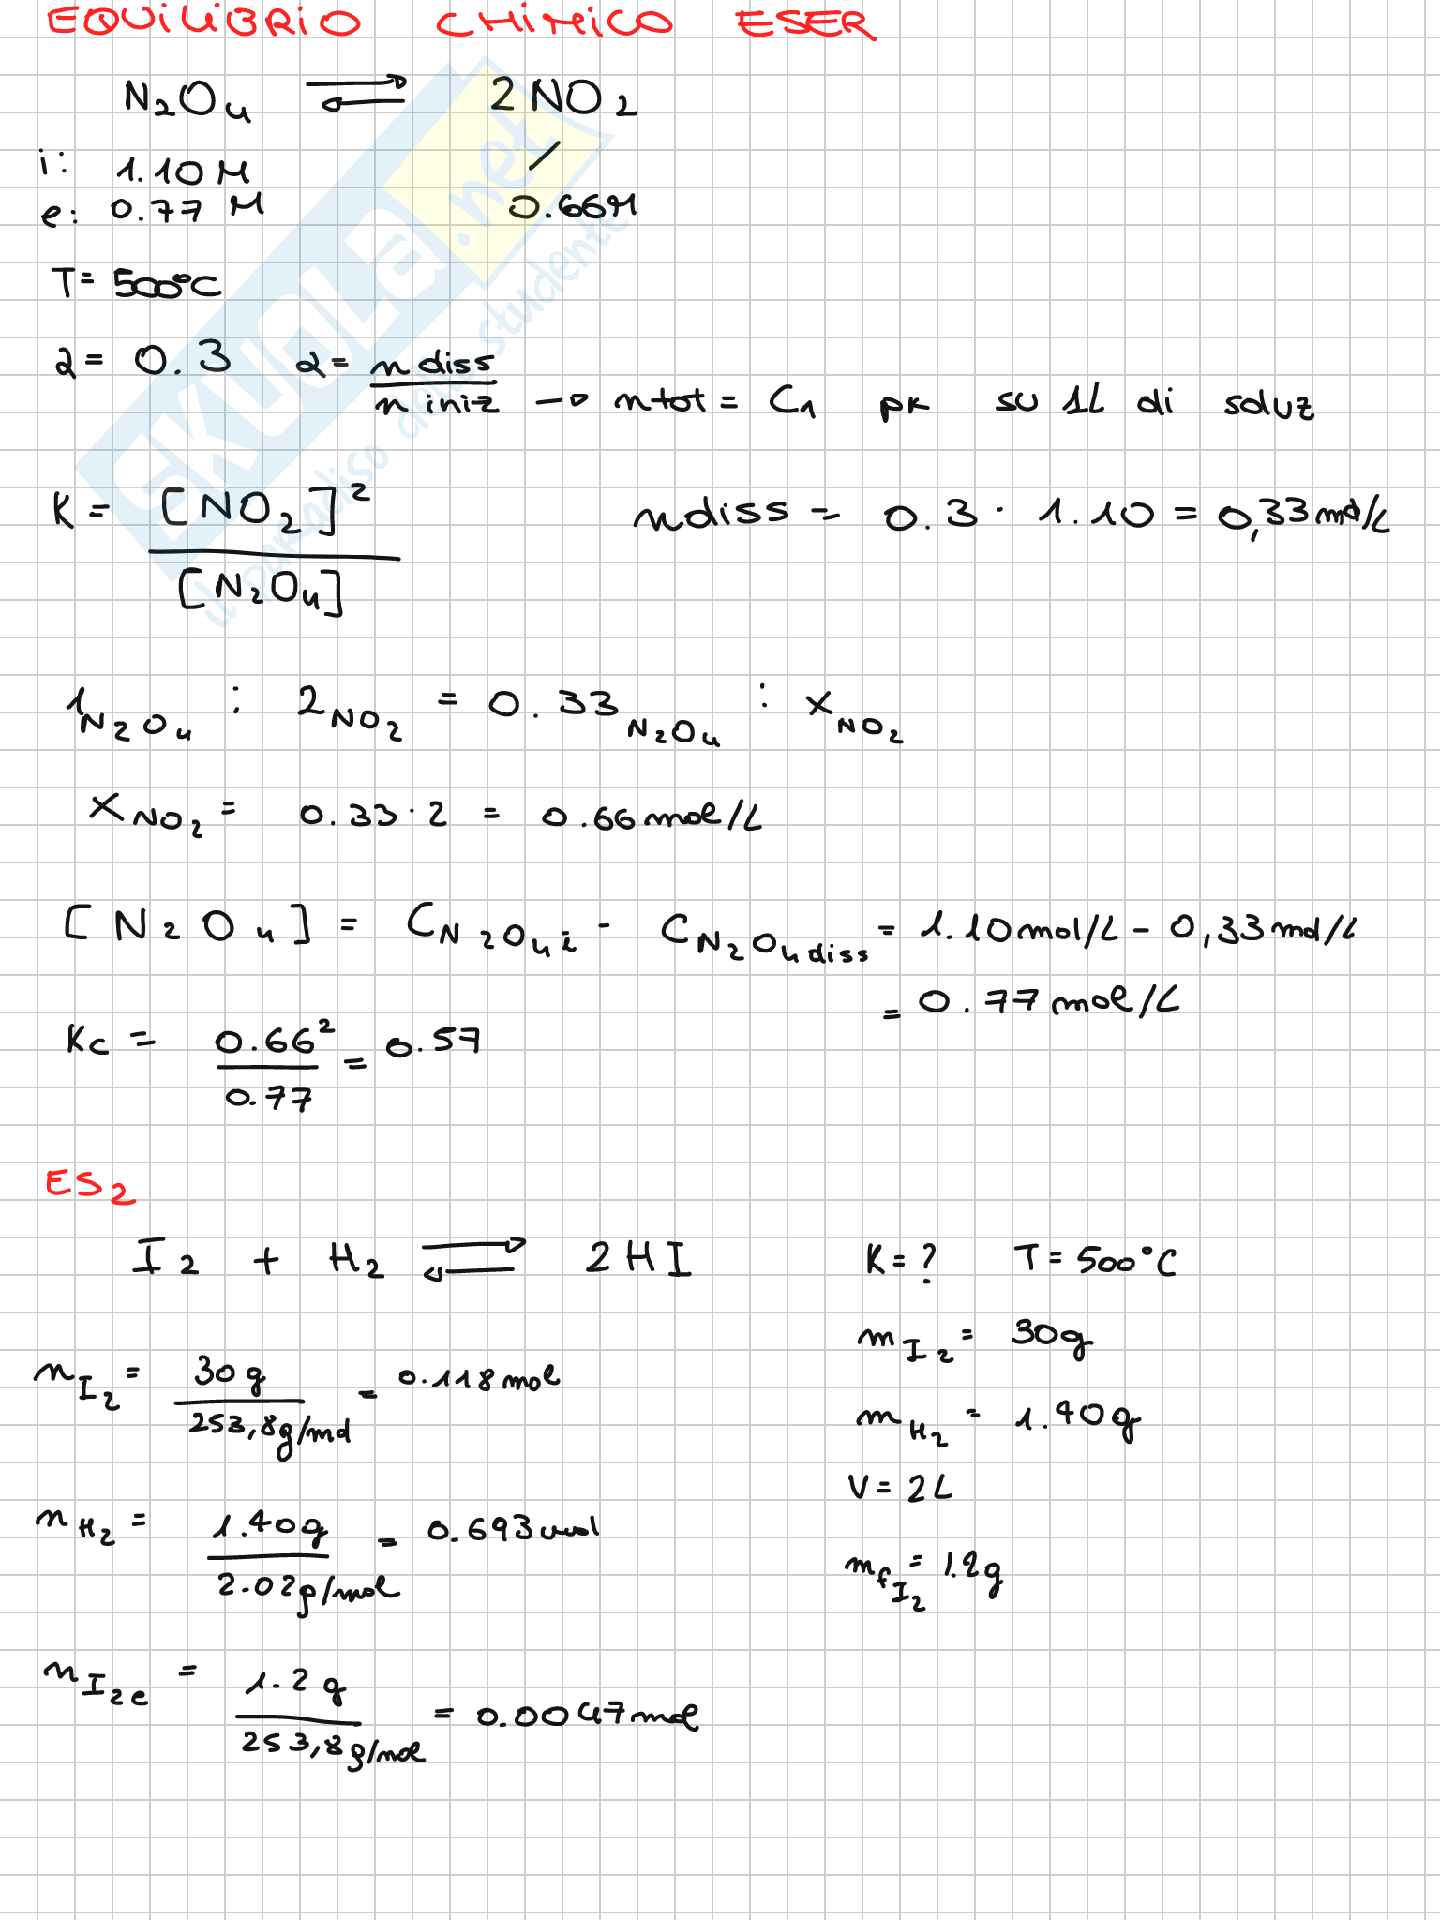 EQUILIBRIO CHIMICO ESER
N₂O₄ ⇌ 2NO₂
i: 1.10 M /
e: 0.77 M 0.66M
T= 500°C
α= 0.3 α= n diss / n iniz → n tot = C₁ pk su 1L di soluz
K = [NO₂]² / [N₂O₄] n diss = 0.3 · 1.10 = 0,33 mol/L
1 N₂O₄ : 2 NO₂ = 0.33 N₂O₄ : x NO₂
x NO₂ = 0.33 · 2 = 0.66 mol/L
[N₂O₄] = C N₂O₄ i - C N₂O₄ diss = 1.10 mol/L - 0,33 mol/L
= 0.77 mol/L
Kc = 0.66² / 0.77 = 0.57
ES 2
I₂ + H₂ ⇌ 2HI K=? T= 500°C
m I₂ = 30g
n I₂ = 30 g / 253,8 g/mol = 0.118 mol
m H₂ = 1.40g
V= 2L
n H₂ = 1.40g / 2.02 g/mol = 0.693 mol
m f I₂ = 1.2g
n I₂e = 1.2 g / 253,8 g/mol = 0.0047 mol
SKUOLA.net
il paradiso dello studente